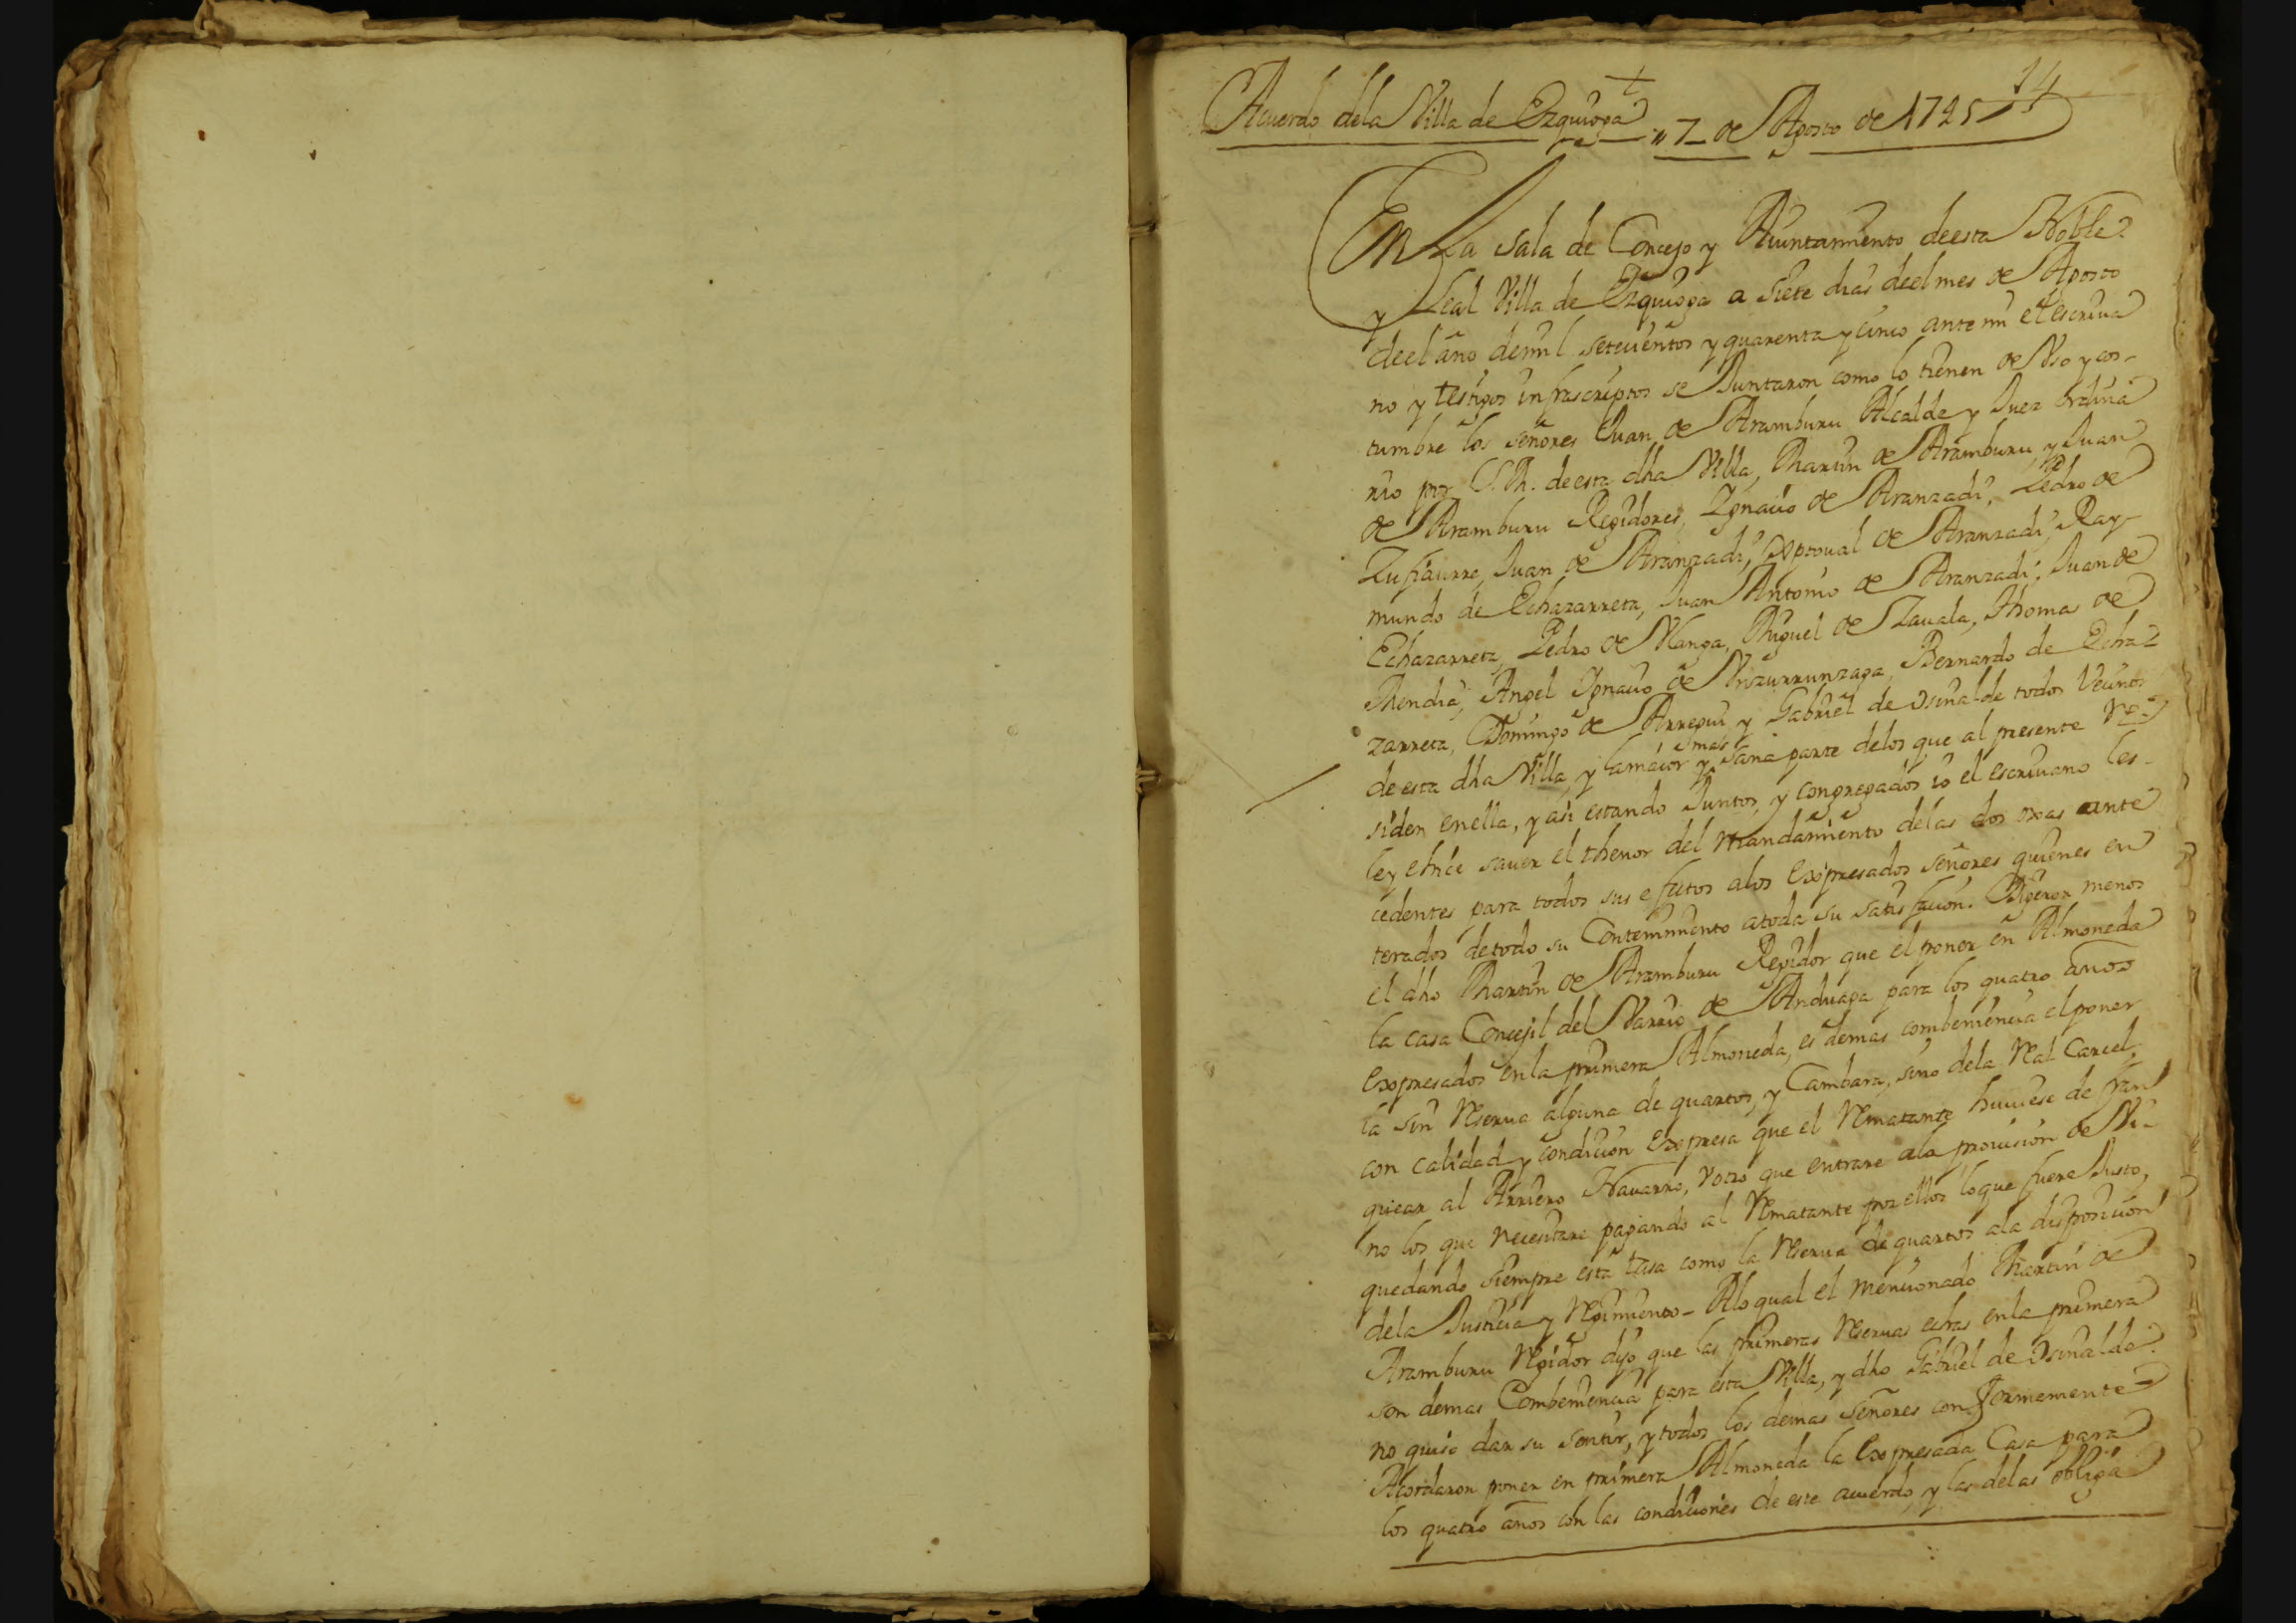 14
Acuerdo dela Villa de Ezquioga 7 de Agosto de 1745
En La Sala de Concejo y Aiuntamiento deesta Noble
y Leal Villa de Ezquioga a siete dias deel mes de Agosto
deel año demil setecientos y quarenta y cinco ante mi el escriva
no y testigos infrascriptos se Juntaron como lo tienen de Vso y cos-
tumbre los señores Juan de Aramburu Alcalde y Juez ordina
rio por S.M. deesta dha Villa, Martin de Aramburu, y Juan
de Aramburu Regidores, Ignacio de Aranzadi, Pedro de
Zufiaurre, Juan de Aranzadi, Xptoual de Aranzadi, Ray-
mundo de Echazarreta, Juan Antonio de Aranzadi, Juan de
Echazarreta, Pedro de Vlanga, Miguel de Zauala, Thoma de
Mendia, Angel Ignacio de Vrizurrunzaga, Bernardo de Echa-
zarreta, Domingo de Arregui y Gabriel de Osinalde todos Vecinos
de esta dha Villa, y lamaior y mas sana parte delos que al presente Re-
siden enella, y asi estando Juntos, y congregados io el escriuano les
ley e hice sauer el thenor del Mandamiento delas dos oxas ante
cedentes para todos sus efectos alos Expresados señores quienes en
terados detodo su Contenimiento atoda su satisfacion. Dijeron menos
el dho Martin de Aramburu Regidor que el poner en Almoneda
la casa Concejil del Varrio de Anduaga para los quatro años
Expresados enla primera Almoneda, es demas combeniencia el poner
la sin Reserua alguna de quartos, y Cambara, sino dela Real Carcel,
con calidad y condicion Expresa que el Rematante huuiese de fran
quear al Arriero Nauarro, v otro que entrare ala prouision de Vi-
no los que necesitare pagando al Rematante por ellos loque fuere Justo,
quedando siempre esta tasa como la Reserua de quartos ala disposicion
dela Justicia y Regimiento - Alo qual el mencionado Martin de
Aramburu Regidor dijo que las primeras Reseruas echas enla primera
son demas Combeniencia para esta Villa, y dho Gabriel de Osinalde
no quiso dar su sentir, y todos los demas Señores conformemente
Acordaron poner en primera Almoneda la Expresada Casa para
los quatro años con las condiciones de este acuerdo, y las delas obliga